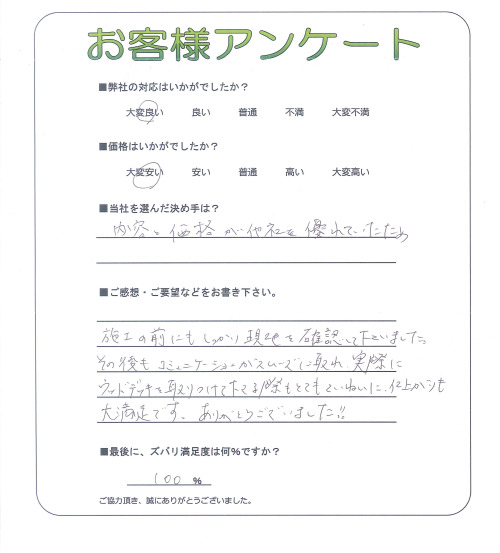 お客様アンケート
■弊社の対応はいかがでしたか？
大変良い 良い 普通 不満 大変不満
■価格はいかがでしたか？
大変安い 安い 普通 高い 大変高い
■当社を選んだ決め手は？
内容、価格が他社を優れていたため
■ご感想・ご要望などをお書き下さい。
施工の前にもしっかり現地を確認して下さいました。
その後もコミュニケーションがスムーズに取れ、実際に
ウッドデッキを取りつけて下さる際もとてもていねいに、仕上がりも
大満足です。ありがとうございました!!
■最後に、ズバリ満足度は何%ですか？
100 %
ご協力頂き、誠にありがとうございました。